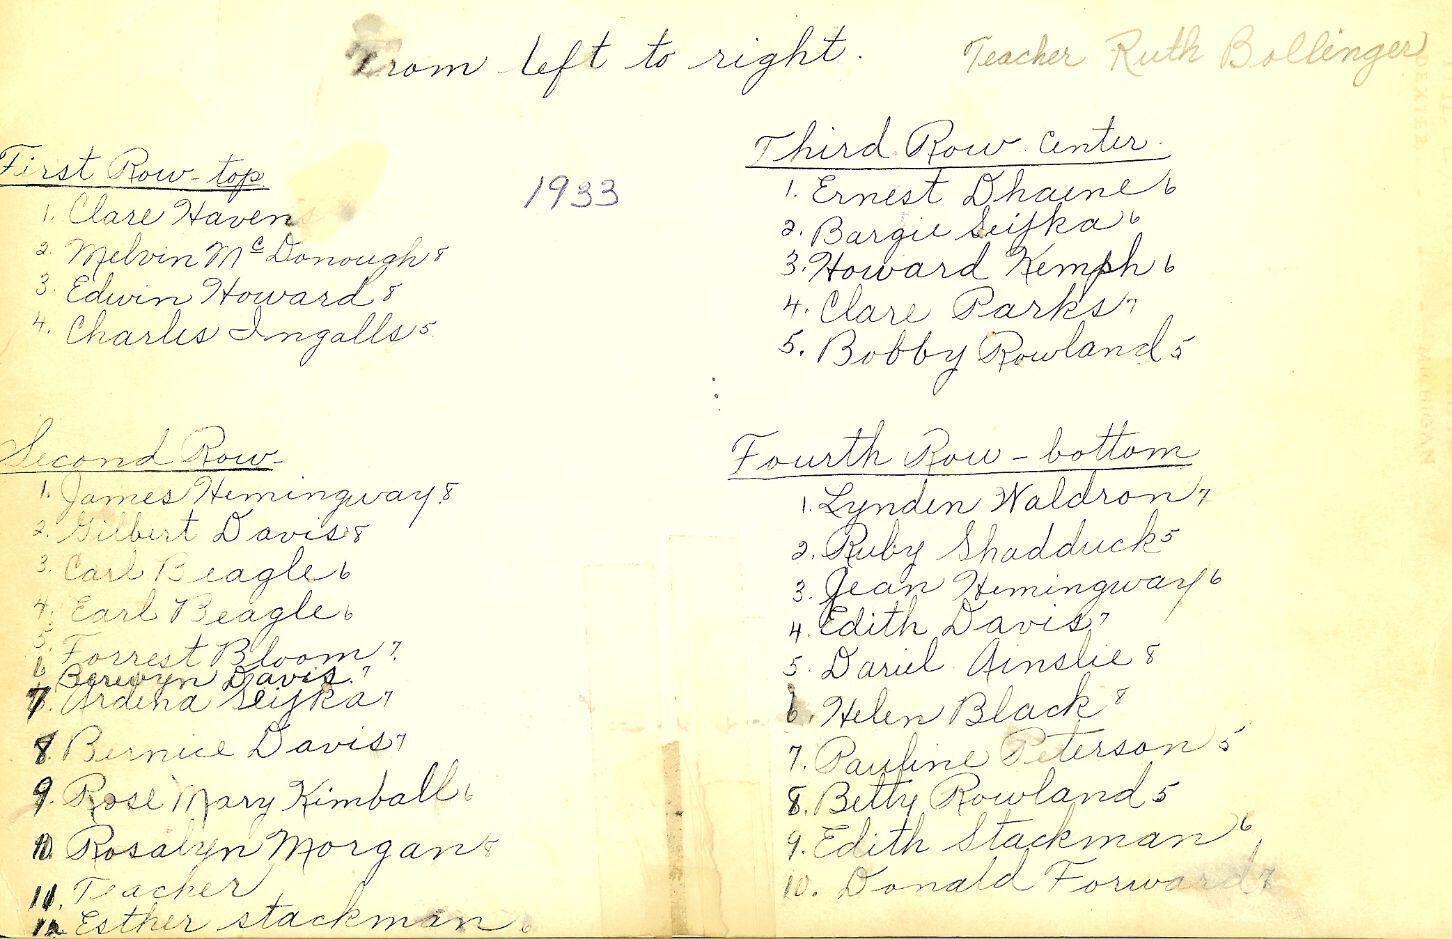 From left to right.
Teacher Ruth Bollinger
1933
First Row-top
1. Clare Haven
2. Melvin McDonough 8
3. Edwin Howard 8
4. Charles Ingalls 5
Second Row-
1. James Hemingway 8
2. Gilbert Davis 8
3. Carl Beagle 6
4. Earl Beagle 6
5. Forrest Bloom 7.
6 Berwyn Davis. 7
7. Ardena Seijka 7
8. Bernice Davis 7
9. Rose Mary Kimball 6
10. Rosalyn Morgan 8
11. Teacher
12. Esther Stackman 6
Third Row center.
1. Ernest Dhaene 6
2. Bargie Seijka 6
3. Howard Kemph 6
4. Clare Parks 7
5. Bobby Rowland 5
Fourth Row - bottom
1. Lynden Waldron 7
2. Ruby Shadduck 5
3. Jean Hemingway 6
4. Edith Davis 7
5. Dariel Ainslie 8
6. Helen Black 8
7. Pauline Peterson 5
8. Betty Rowland 5
9. Edith Stackman 6
10. Donald Forward 7